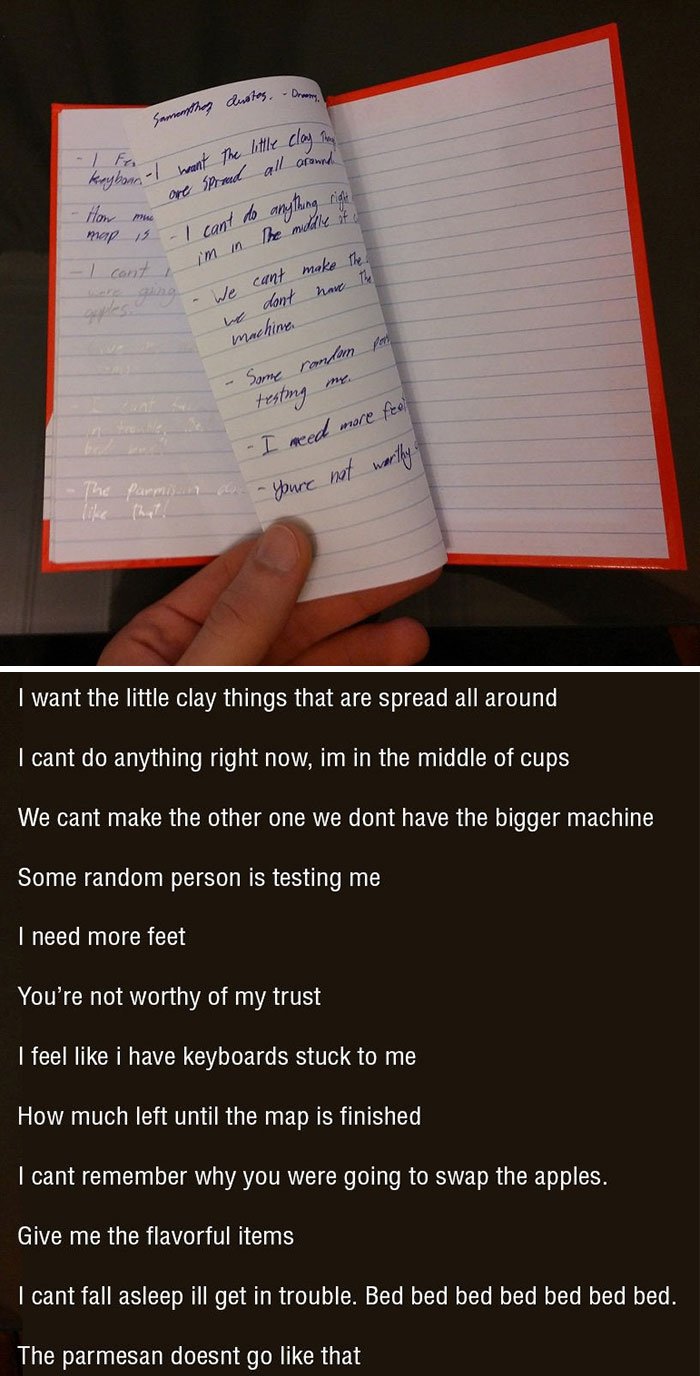 Samantha's Quotes. - Dreams.
- I want The little clay Things
are spread all around
- I cant do anything right
im in The middle of c
- We cant make The
we dont have The
machine.
- Some random per
testing me.
- I need more feet
- Youre not worthy
- I Fe
keyboar
- How muc
map is
- I cant r
were going
apples.
- The Parmisan do
like that!
I want the little clay things that are spread all around
I cant do anything right now, im in the middle of cups
We cant make the other one we dont have the bigger machine
Some random person is testing me
I need more feet
You’re not worthy of my trust
I feel like i have keyboards stuck to me
How much left until the map is finished
I cant remember why you were going to swap the apples.
Give me the flavorful items
I cant fall asleep ill get in trouble. Bed bed bed bed bed bed bed.
The parmesan doesnt go like that